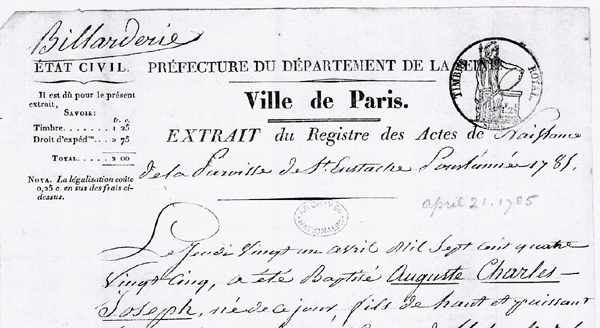 Billarderie
ÉTAT CIVIL. PRÉFECTURE DU DÉPARTEMENT DE LA SEINE.
TIMBRE ROYAL.
Il est dû pour le présent
extrait,
SAVOIR:
fr. c.
Timbre....... 1 25
Droit d'expéd.on.. » 75
TOTAL..... 2 00
NOTA. La légalisation coûte
0,25 c. en sus des frais ci-
dessus.
Ville de Paris.
EXTRAIT du Registre des Actes de Naissance
de la Paroisse de St. Eustache L'an 1785.
april 21. 1785
ARCHIVES NATIONALES
Le Jeudi Vingt un avril Mil Sept cent quatre
Vingt Cinq, a été Baptisé Auguste Charles-
Joseph, né de ce jour, fils de haut et puissant